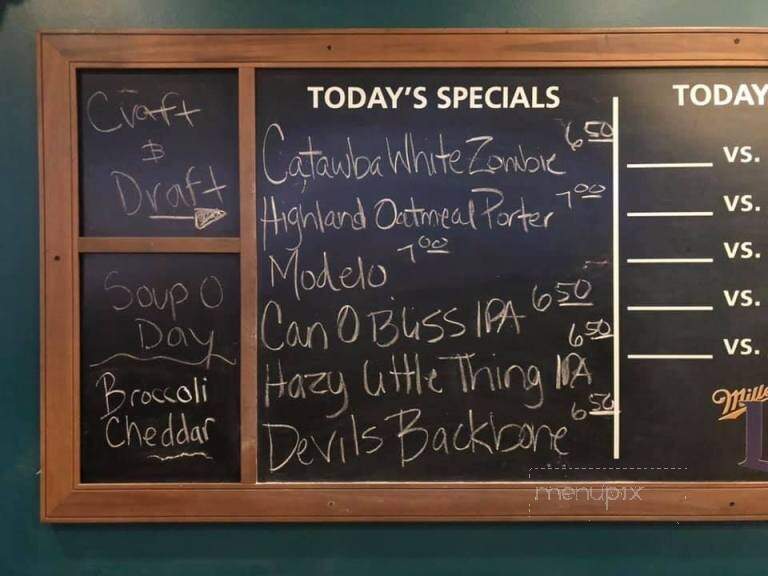 Craft
&
Draft
Soup O
Day
Broccoli
Cheddar
TODAY'S SPECIALS
Catawba White Zombie 6 50
Highland Oatmeal Porter 7 00
Modelo 7 00
Can O Bliss IPA 6 50
Hazy Little Thing IPA 6 50
Devils Backbone 6 50
TODAY
VS.
VS.
VS.
VS.
VS.
Mille
L
menupix